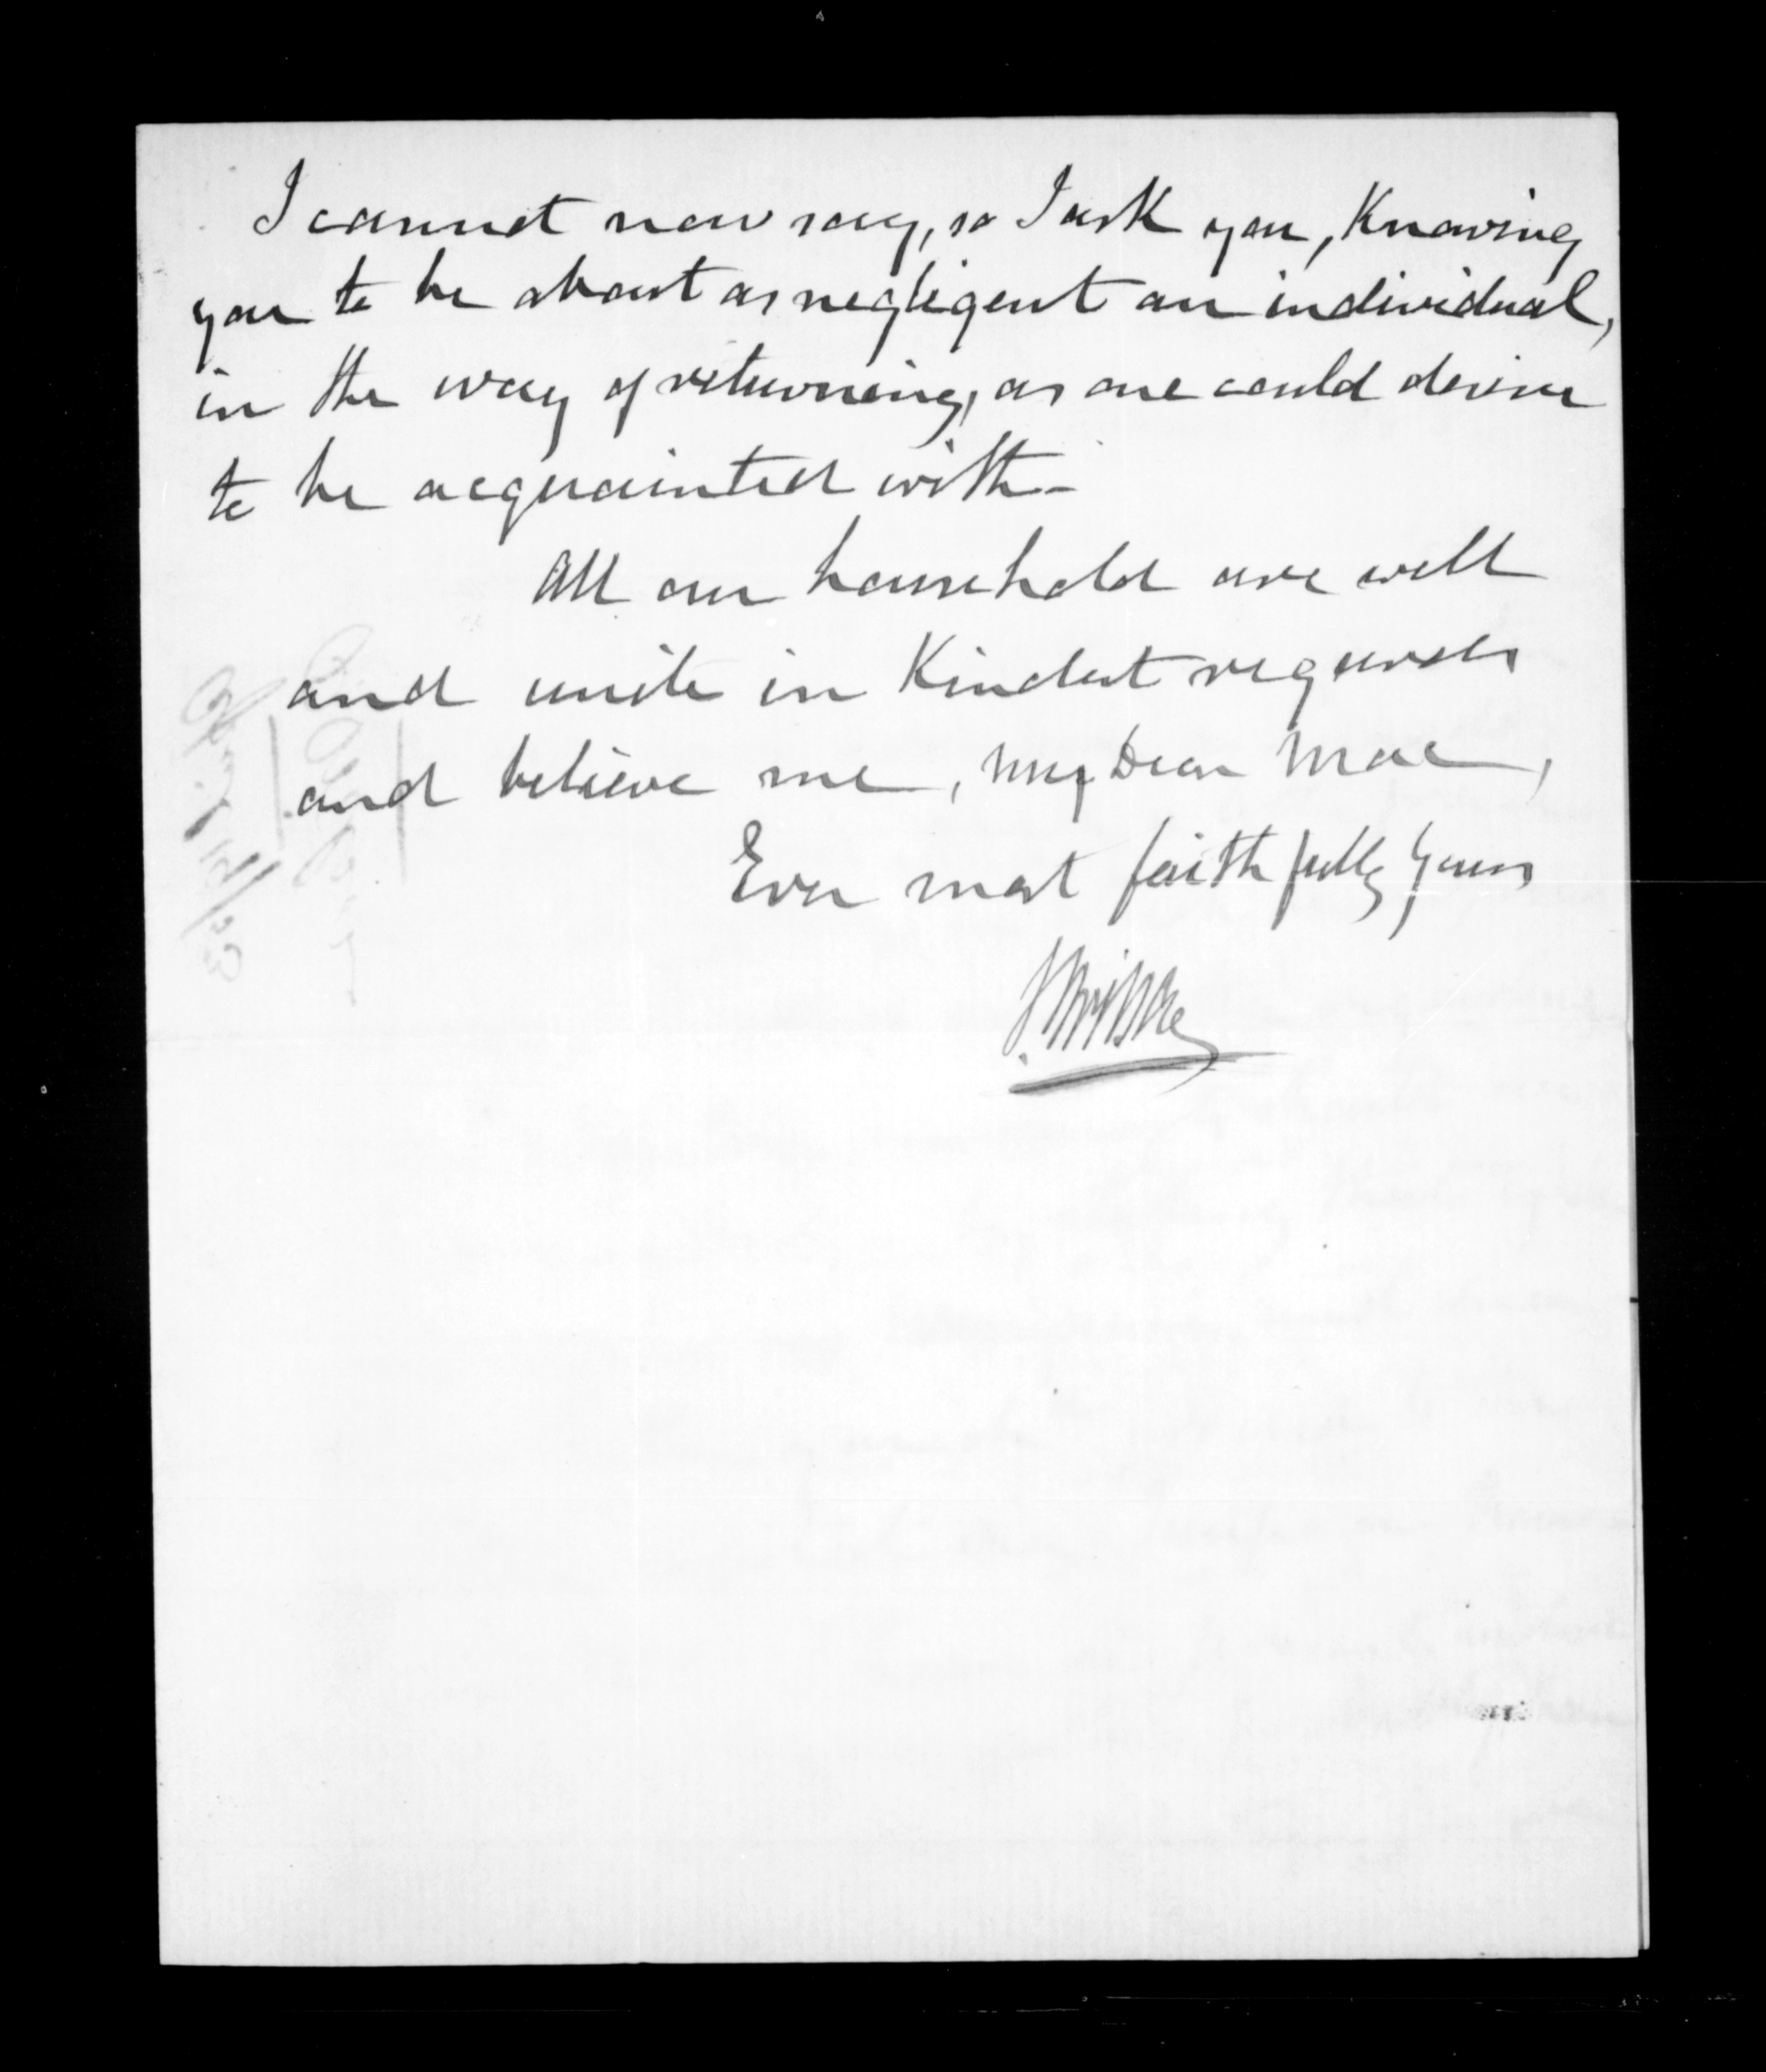 I cannot now say, so I ask you, Knowing
you to be about as negligent an individual,
in the way of returning, as one could desire
to be acquainted with -
All our household are well
and unite in Kindest regards
and believe me, My Dear Mac,
Ever most faithfully Yours